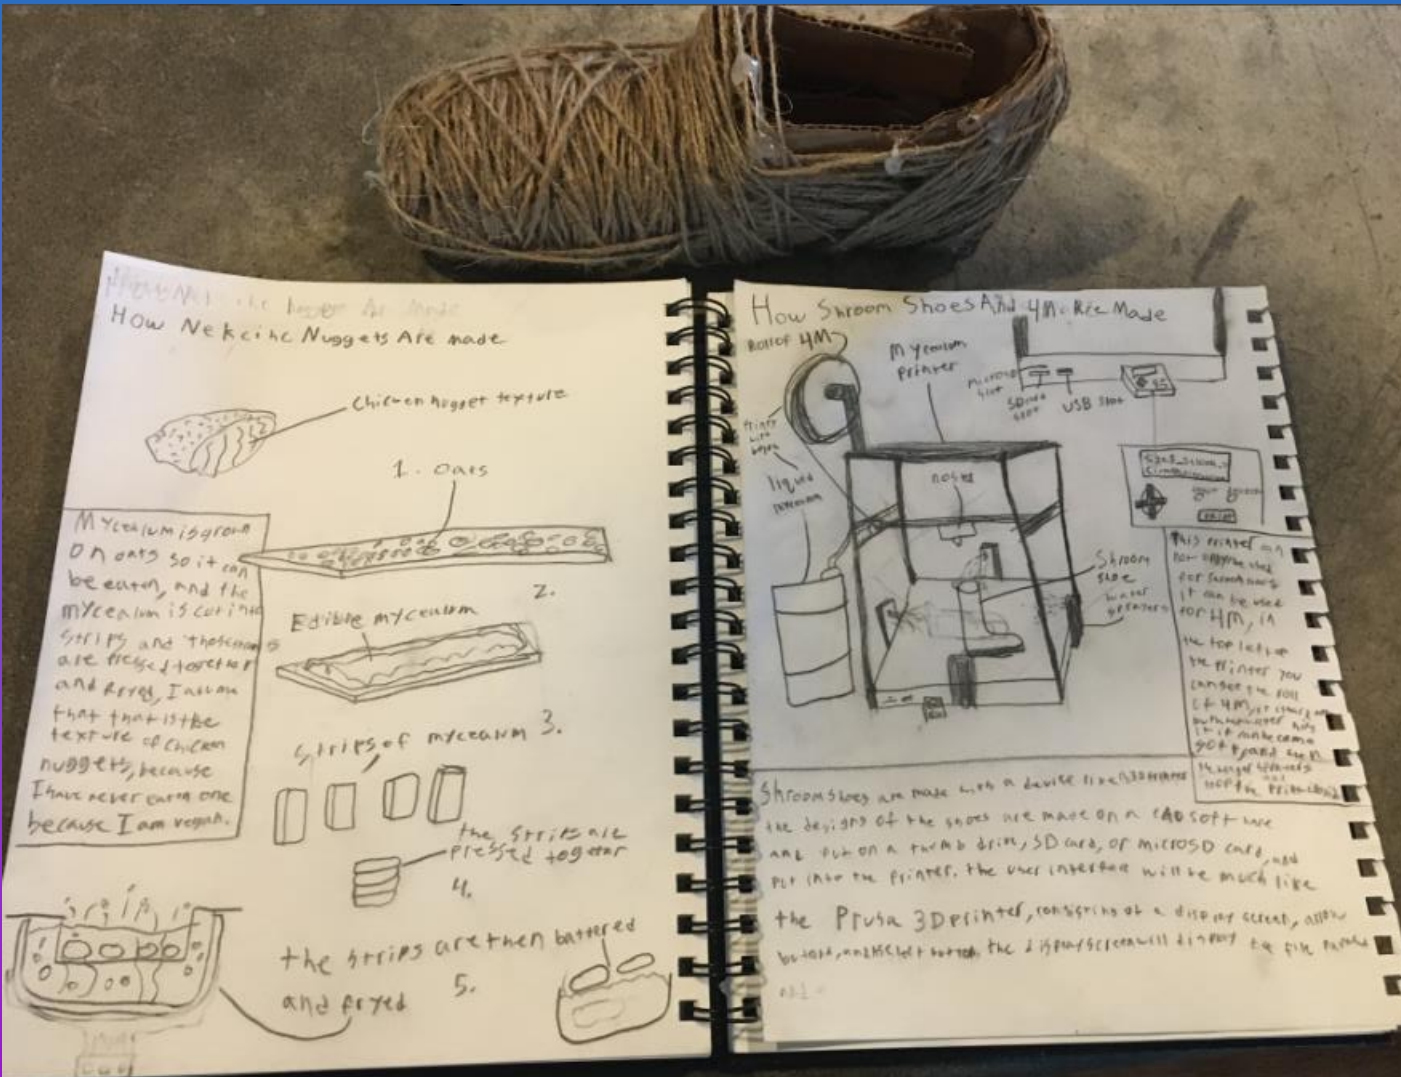 How Nekcihc Nuggets Are made
Chicken nugget texture
1. oats
Mycealum is grown
on oats so it can
be eaten, and the
mycealum is cut into
strips and
are pressed together
and fryed, I assume
that that is the
texture of chicken
nuggets, because
I have never eaten one
because I am vegan.
2.
Edible mycealum
strips of mycealum 3.
the strips are
pressed together
4.
the strips are then battered
and fryed
5.
How Shroom Shoes And 4M Are Made
Roll of 4M
Mycealum
Printer
microSD
slot
SD card
slot
USB slot
liquid
mycealum
Shroom
shoe
water
sprayers
This printer can
not only be used
for shroom shoes
it can be used
for 4M, in
the top left of
the printer you
can see the roll
of 4M,
Shroom shoes are made with a device like a 3D printer
the designs of the shoes are made on a CAD software
and put on a thumb drive, SD card, or microSD card, and
put into the printer. the user interface will be much like
the Prusa 3D printer, consisting of a display screen, arrow
buttons, the display screen will display the file